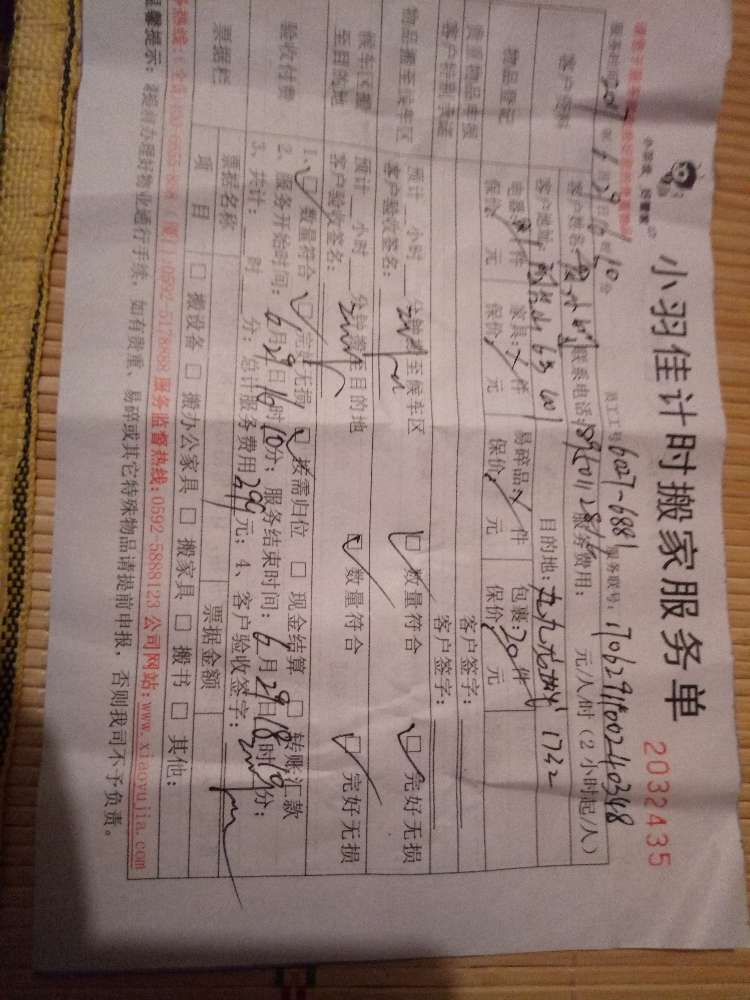 小羽佳计时搬家服务单
2032435
小羽佳 好管家
员工工号: 6027-6881 服务联号: 1706291100240348
服务时间: 2017年6月29日16时10分
客户资料
客户姓名: 联系电话: 服务费用: 元/人/时 (2小时起/人)
客户地址: 目的地: 1732
物品登记
电器: 件 家具: 件 易碎品: 件 包裹: 20件
保价: 元 保价: 元 保价: 元 保价: 元
贵重物品申报 客户签字:
客户特别承诺 客户签字:
物品搬至候车区
预计__小时__分钟搬至候车区 □数量符合 □完好无损
客户验收签名:
候车区搬至目的地
预计__小时__分钟搬至目的地 □数量符合 □完好无损
客户验收签名:
验收付费
1、□数量符合 □完好无损 □按需归位 □现金结算 □转账汇款
2、服务开始时间: 6月29日16时10分; 服务结束时间: 6月29日18时19分;
3、共计: __时__分; 总计服务费用299元; 4、客户验收签字:
票据栏
票据名称 票据金额
项目 □搬设备 □搬办公家具 □搬家具 □搬书 □其他:
0592-5178888 服务监督热线: 0592-5888123 公司网站: www.xiaoyujia.com
温馨提示: 请提前办理好物业通行手续, 如有贵重、易碎或其它特殊物品请提前申报, 否则我司不予负责。